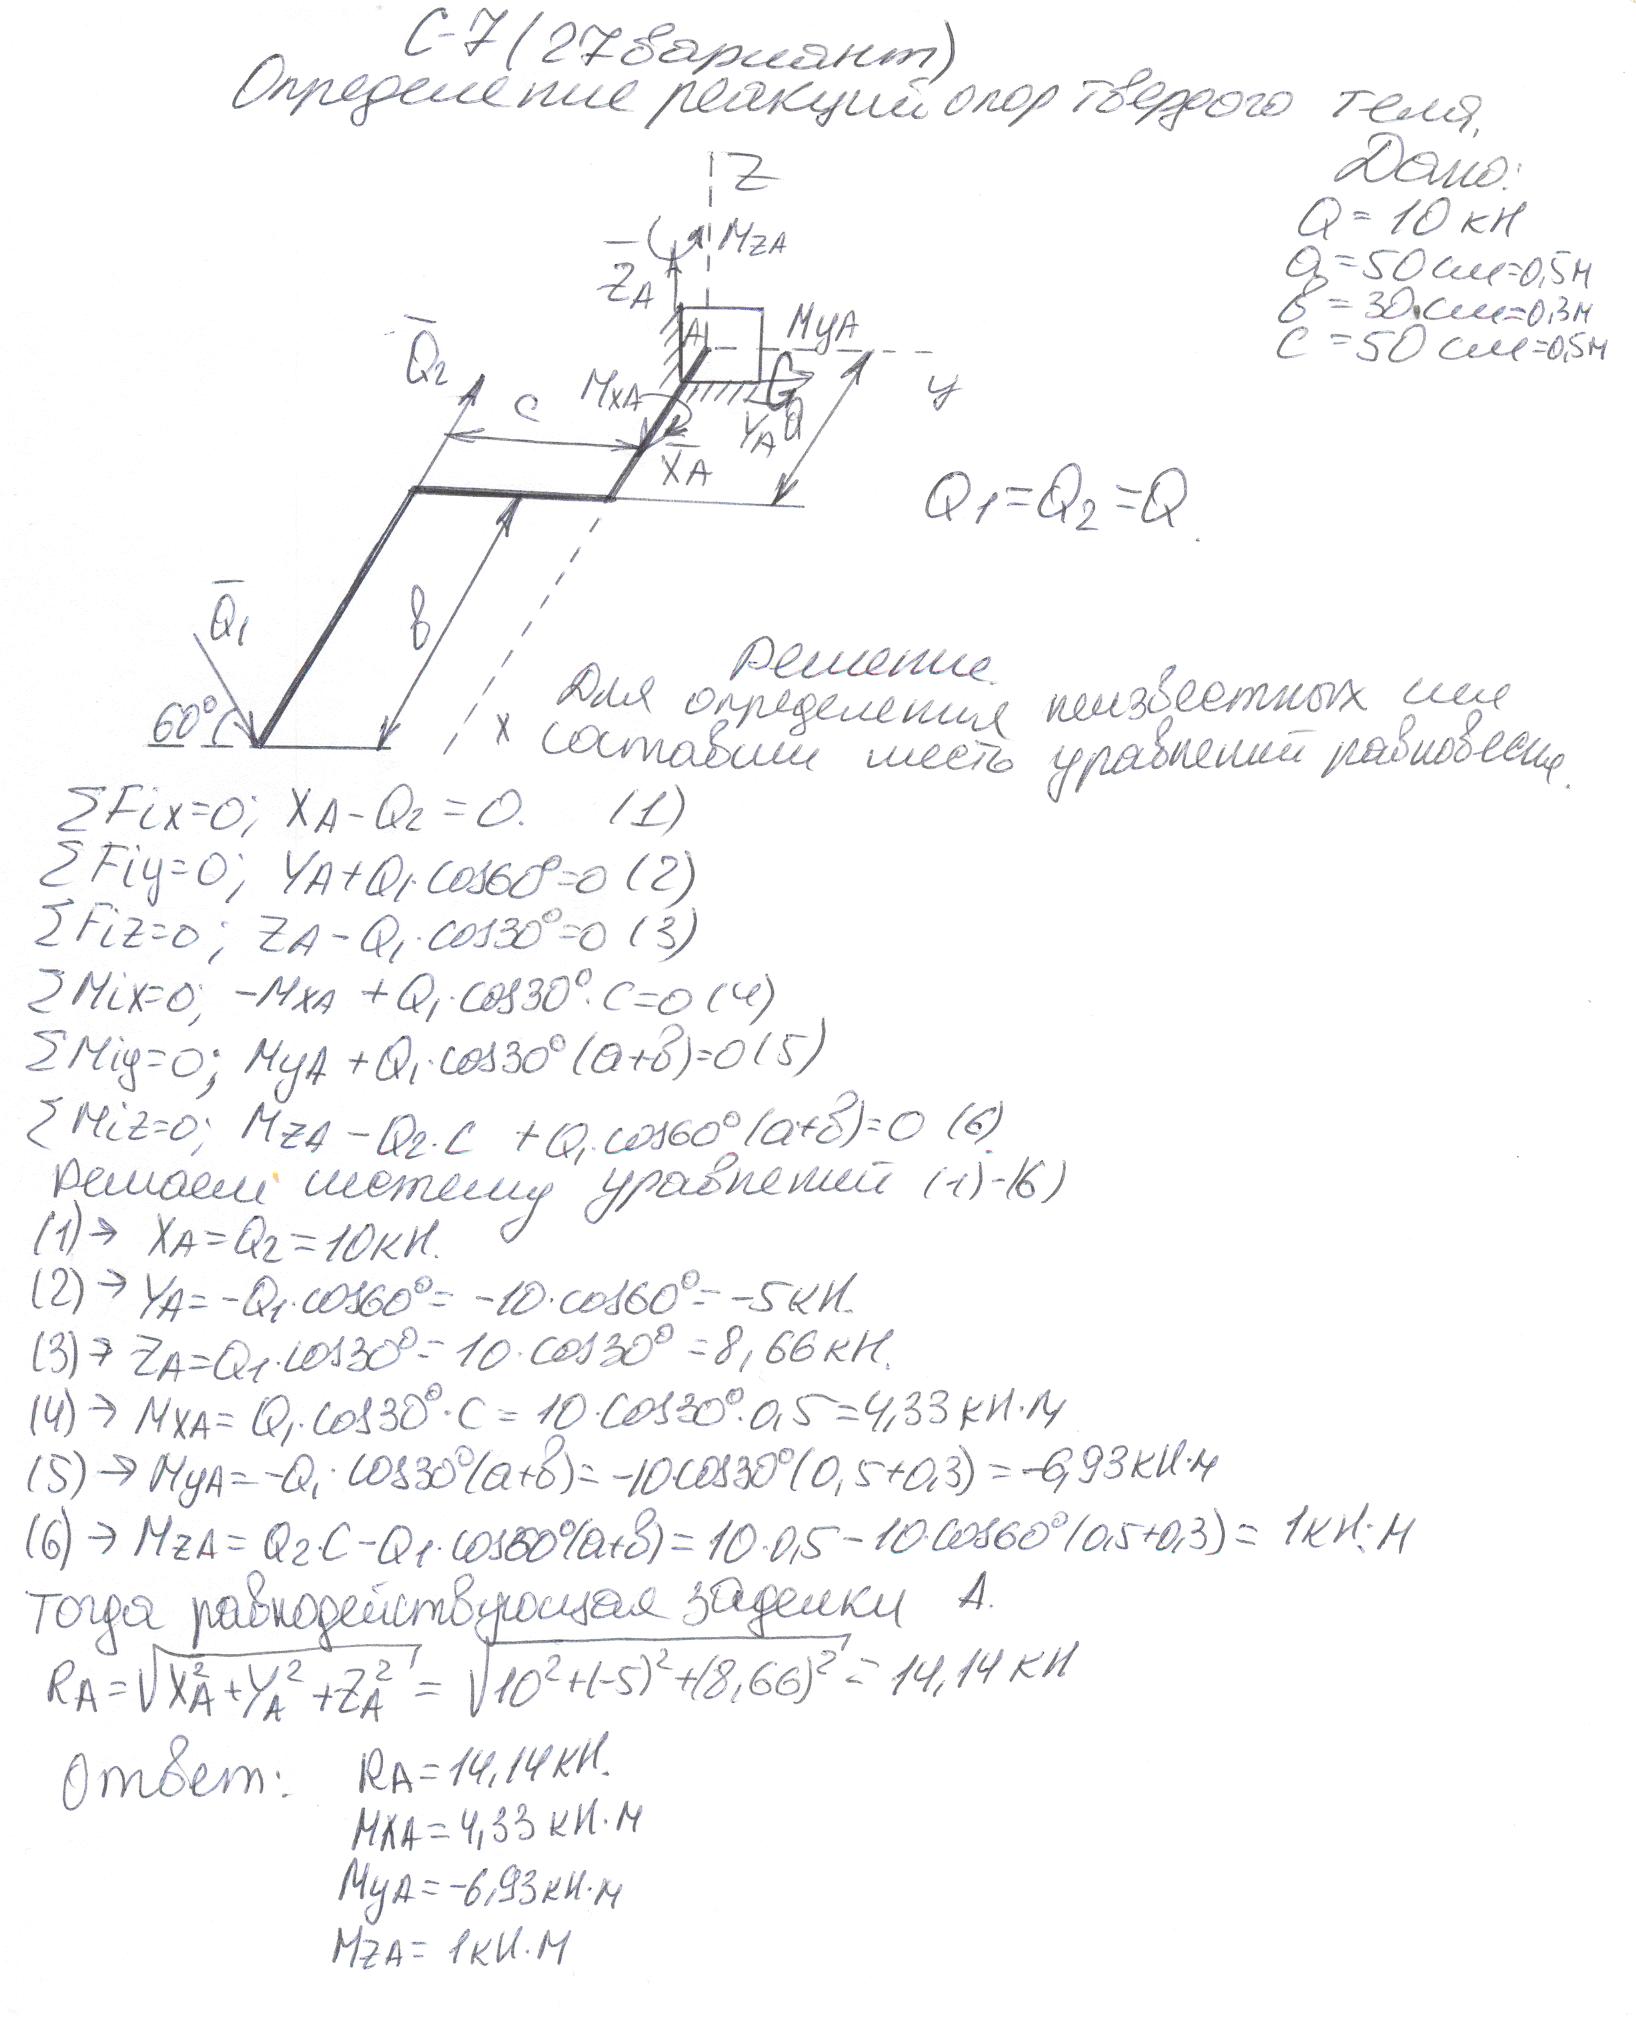 С-7 (27 вариант)
Определение реакций опор твердого тела.
Дано:
Q = 10 кН
a = 50 см = 0,5 м
в = 30 см = 0,3 м
c = 50 см = 0,5 м
Z
MZA
ZA
A
MyA
y
Q2
c
MXA
YA
a
XA
Q1 = Q2 = Q
в
Q1
60°
x
Решение.
Для определения неизвестных сил
составим шесть уравнений равновесия.
ΣFix=0; XA - Q2 = 0. (1)
ΣFiy=0; YA + Q1·cos60°=0 (2)
ΣFiz=0; ZA - Q1·cos30°=0 (3)
ΣMix=0; -MXA + Q1·cos30°·c=0 (4)
ΣMiy=0; MyA + Q1·cos30°(a+в)=0 (5)
ΣMiz=0; MZA - Q2·c + Q1·cos60°(a+в)=0 (6)
Решаем систему уравнений (1)-(6)
(1)→ XA = Q2 = 10 кН.
(2)→ YA = -Q1·cos60° = -10·cos60° = -5 кН.
(3)→ ZA = Q1·cos30° = 10·cos30° = 8,66 кН.
(4)→ MXA = Q1·cos30°·c = 10·cos30°·0,5 = 4,33 кН·м
(5)→ MyA = -Q1·cos30°(a+в) = -10cos30°(0,5+0,3) = -6,93 кН·м
(6)→ MZA = Q2·c - Q1·cos60°(a+в) = 10·0,5 - 10·cos60°(0,5+0,3) = 1 кН·м
Тогда равнодействующая заделки A.
RA = √XA²+YA²+ZA² = √10²+(-5)²+(8,66)² = 14,14 кН
Ответ: RA = 14,14 кН.
MXA = 4,33 кН·м
MyA = -6,93 кН·м
MZA = 1 кН·м